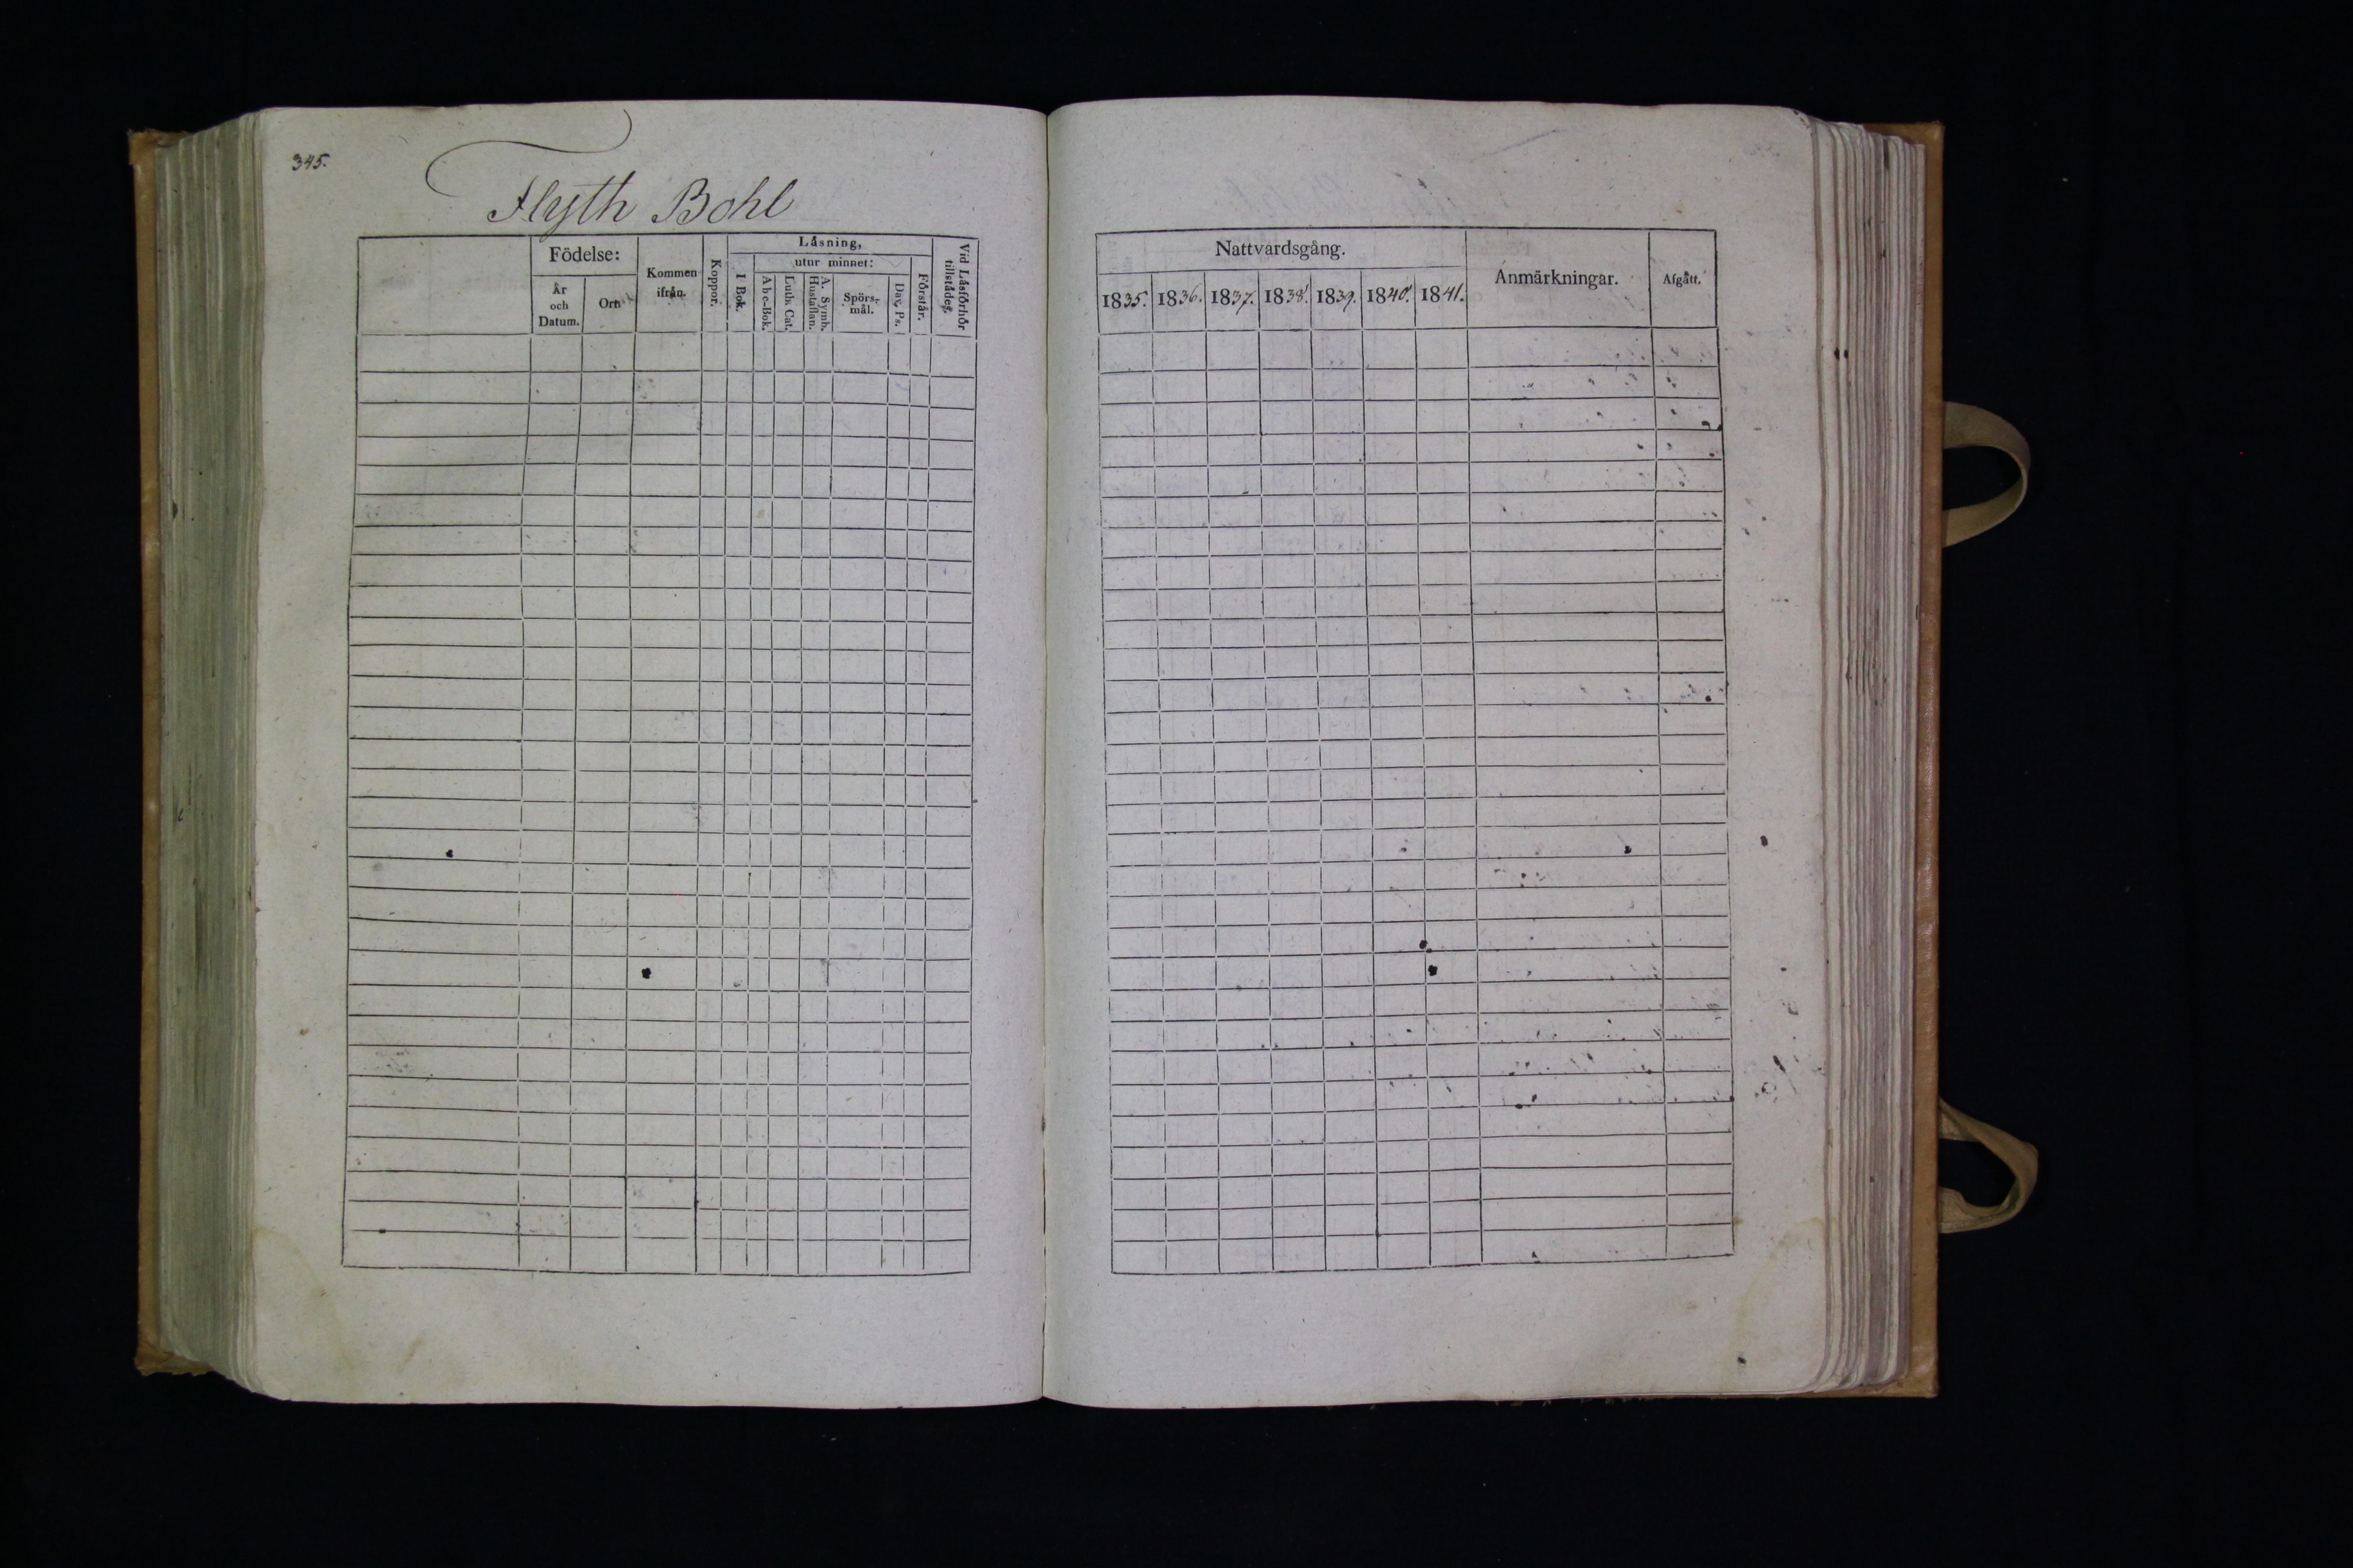 345.
Flyth Bohl
Födelse:
År och Datum.
Ort
Kommen ifrån.
Koppor.
Läsning,
I Bok.
utur minnet:
A b c-Bok.
Luth. Cat.
A. Symb. Hustaflan.
Spörsmål.
Dav. Ps.
Förstår.
Vid Läsförhör tillstådes.
Nattvardsgång.
1835. 1836. 1837. 1838. 1839. 1840. 1841.
Anmärkningar.
Afgått.